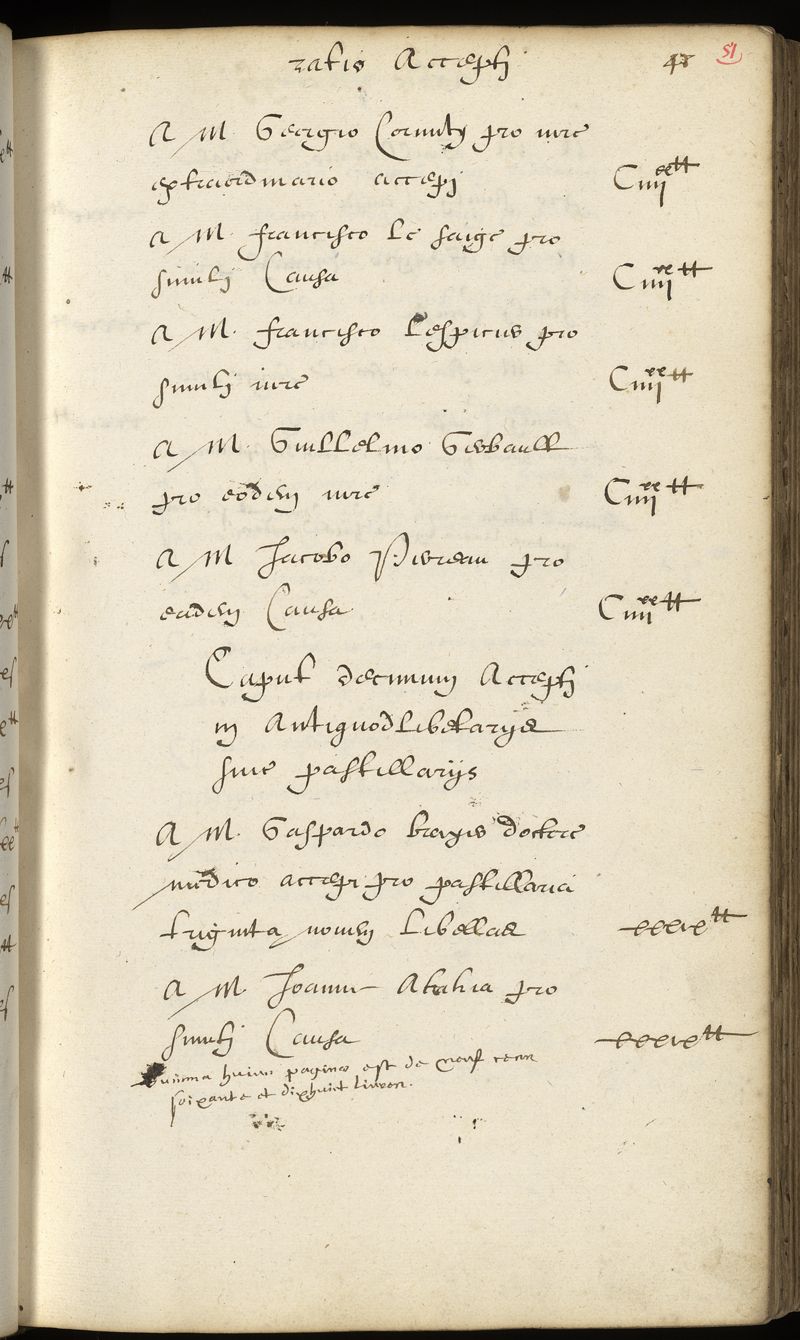 ratio Accepti 48 51
A M. Georgio Cornuty pro iure
extraordinario accepi Ciiii^xx tt
A M. francisco le saige pro
simili Causa Ciiii^xx tt
A M. francisco Lespicier pro
simili iure Ciiii^xx tt
A M. Guillelmo Gerbault
pro eodem iure Ciiii^xx tt
A M. Jacobo Pivreau pro
eadem Causa Ciiii^xx tt
Caput decimum Accepti
in Antiquodlibetarijs
sive pastillarijs
A M. Gaspardo brayer doctore
medico accepi pro pastillaria
triginta novem libellas xxxix tt
A M. Joanne Akakia pro
simili Causa xxxix tt
Summa huius paginae est de neuf cens
soixante et dixhuict livres.